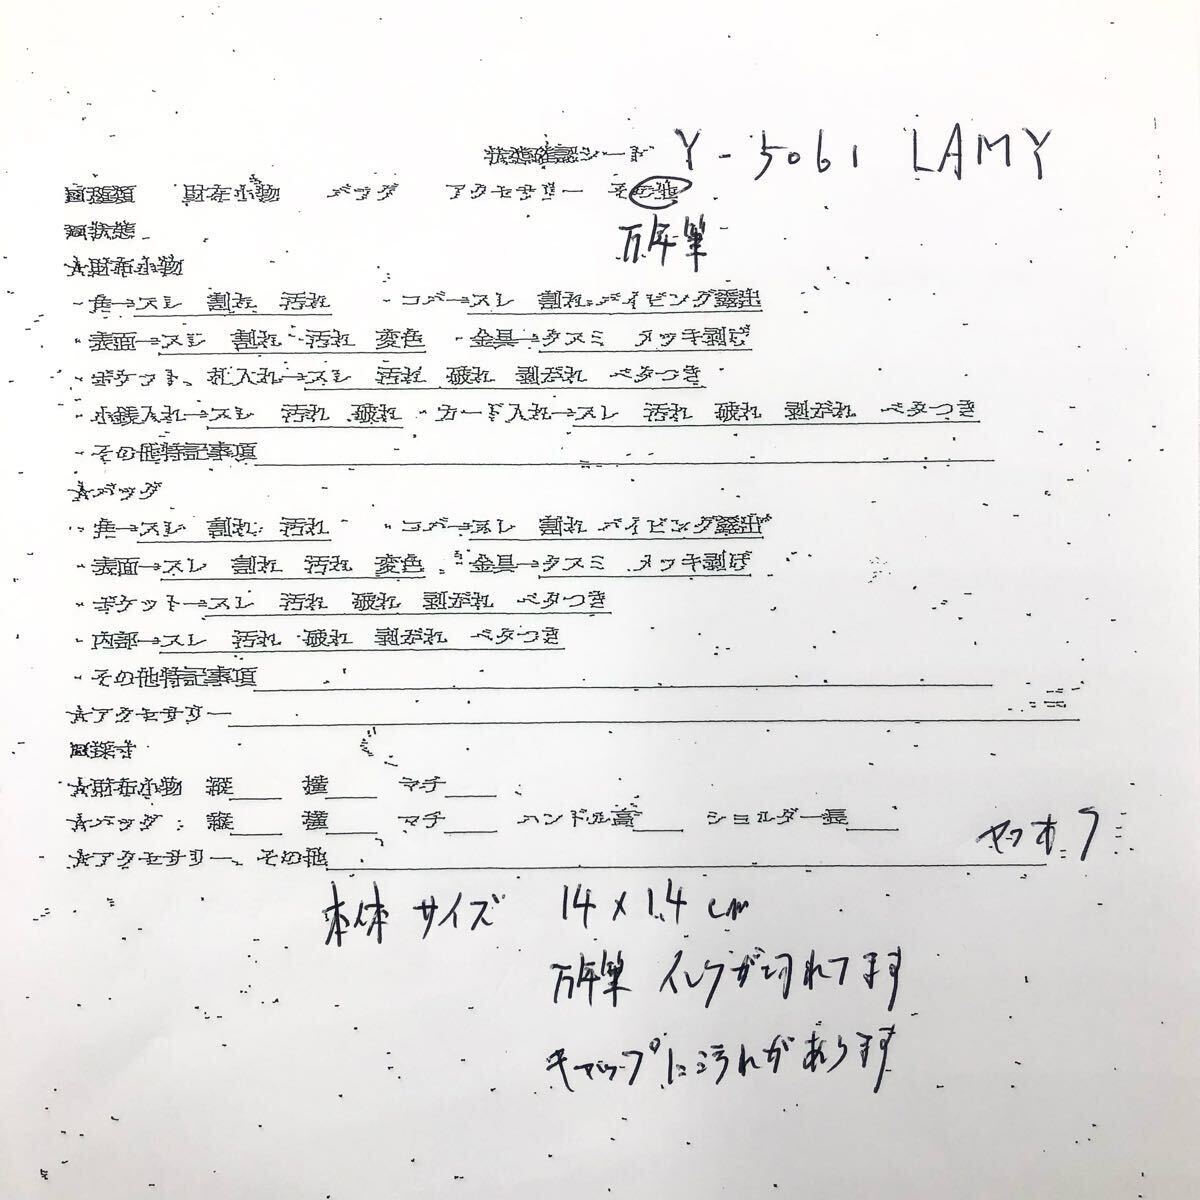 状態確認シート Y-5061 LAMY
■種類 財布小物 バッグ アクセサリー その他
■状態 万年筆
★財布小物
・角→スレ 割れ 汚れ ・コバ→スレ 割れ パイピング露出
・表面→スレ 割れ 汚れ 変色 ・金具→クスミ メッキ剥げ
・ポケット、札入れ→スレ 汚れ 破れ 剥がれ ベタつき
・小銭入れ→スレ 汚れ 破れ ・カード入れ→スレ 汚れ 破れ 剥がれ ベタつき
・その他特記事項
★バッグ
・角→スレ 割れ 汚れ ・コバ→スレ 割れ パイピング露出
・表面→スレ 割れ 汚れ 変色 ・金具→クスミ メッキ剥げ
・ポケット→スレ 汚れ 破れ 剥がれ ベタつき
・内部→スレ 汚れ 破れ 剥がれ ベタつき
・その他特記事項
★アクセサリー
■採寸
★財布小物 縦 横 マチ
★バッグ 縦 横 マチ ハンドル高 ショルダー長
★アクセサリー、その他 ヤフオフ
本体サイズ 14×1.4cm
万年筆 インクが切れてます
キャップに汚れがあります